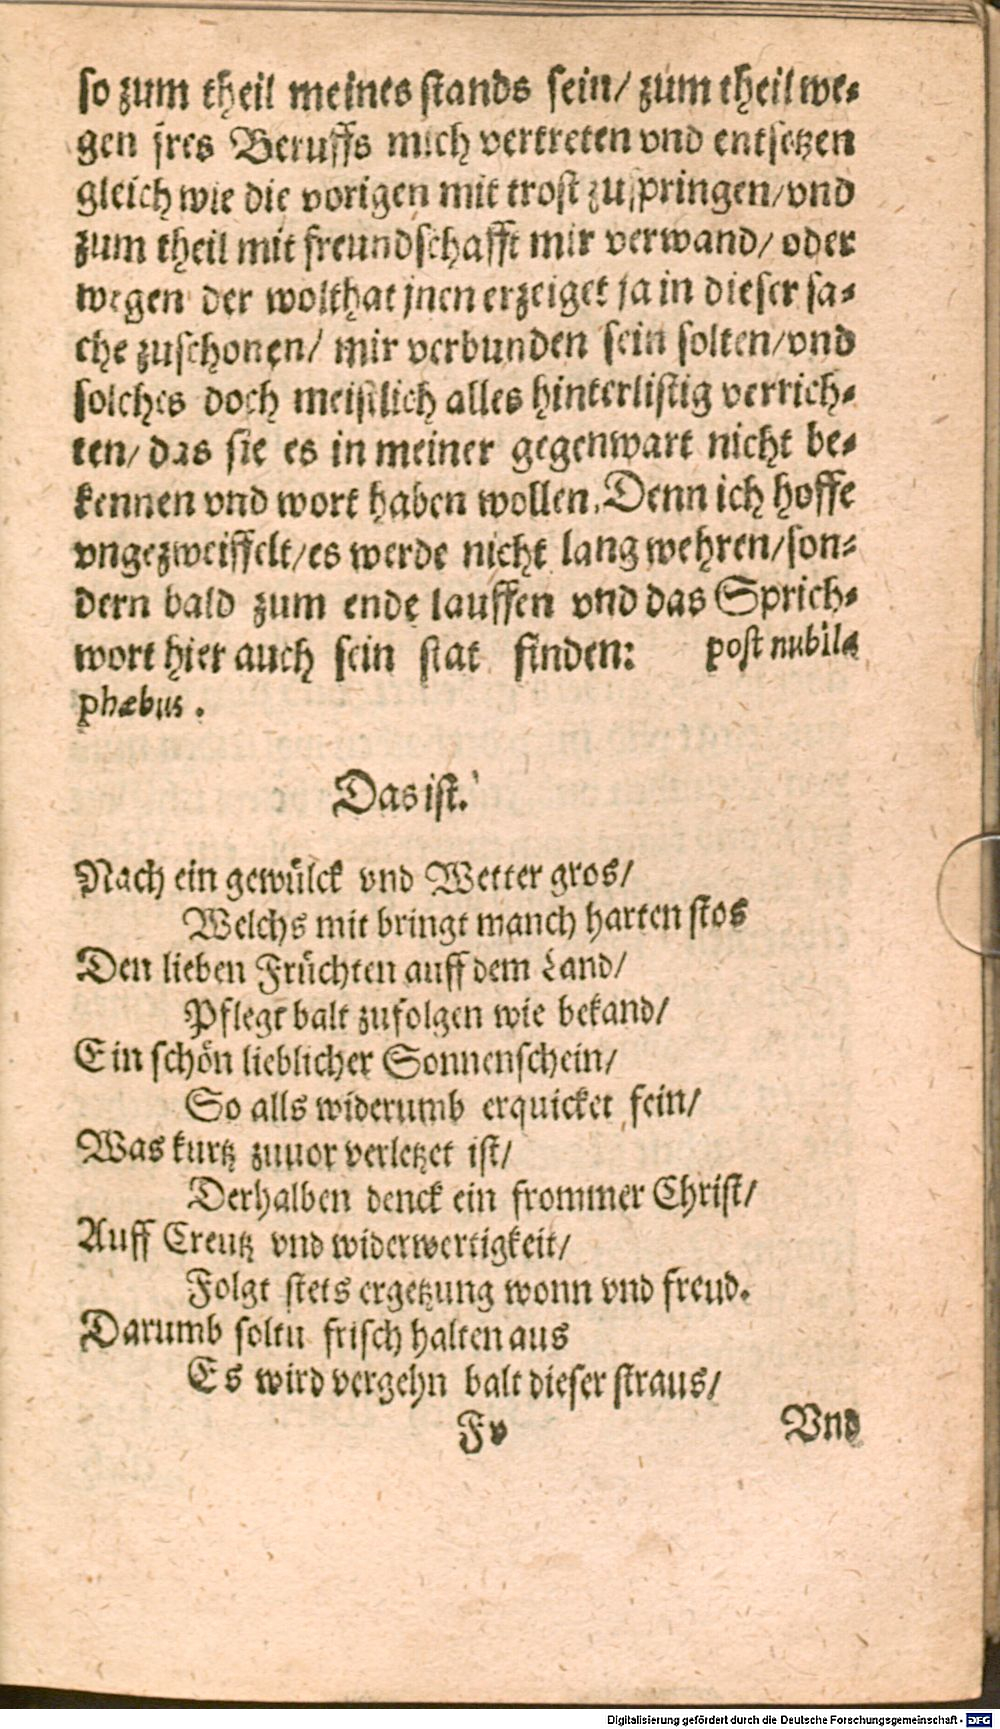 so zum theil meines stands sein/ zum theil we-
gen jres Beruffs mich vertreten vnd entsetzen
gleich wie die vorigen mit trost zuspringen/ vnd
zum theil mit freundschafft mir verwand/ oder
wegen der wolthat jnen erzeiget ja in dieser sa-
che zuschonen/ mir verbunden sein solten/ vnd
solches doch meistlich alles hinterlistig verrich-
ten/ das sie es in meiner gegenwart nicht be-
kennen vnd wort haben wollen. Denn ich hoffe
vngezweiffelt/ es werde nicht lang wehren/ son-
dern bald zum ende lauffen vnd das Sprich-
wort hier auch sein stat finden: post nubila
phæbus.
Das ist.
Nach ein gewülck vnd Wetter gros/
Welchs mit bringt manch harten stos
Den lieben Früchten auff dem Land/
Pflegt balt zufolgen wie bekand/
Ein schön lieblicher Sonnenschein/
So alls widerumb erquicket fein/
Was kurtz zuuor verletzet ist/
Derhalben denck ein frommer Christ/
Auff Creutz vnd widerwertigkeit/
Folgt stets ergetzung wonn vnd freud.
Darumb soltu frisch halten aus
Es wird vergehn balt dieser straus/
F v Vnd
Digitalisierung gefördert durch die Deutsche Forschungsgemeinschaft - DFG